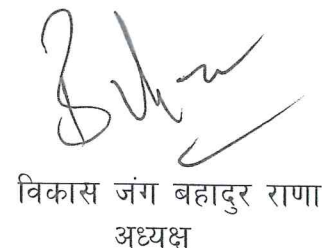 विकास जंग बहादुर राणा
अध्यक्ष